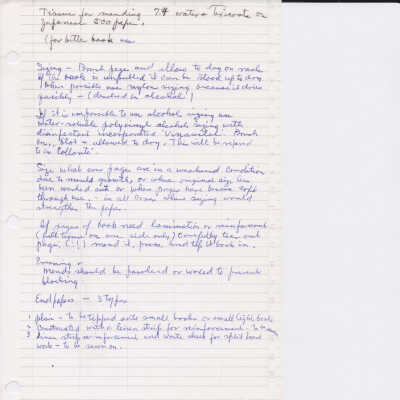 Tissue for mending 7# waters
Japanese 500 paper.
(for better book use
Sizing - Brush page and allow to dry on rack
If the book is unpulled it can be stood up to dry
When possible use nylon sizing, because it dries
quickly - (dissolved in alcohol)
If it is impossible to use alcohol sizing use
water-soluble polyvinyl alcohol sizing with
disinfectant incorporated. Brush
on, blot + allowed to dry. This will be repend
to in
Size what ever pages are in a weakened condition
due to mould growth, or whose original size has
been washed out or when pages have become soft
through use. - in all cases where sizing would
strengthen the paper.
If pages of book need lamination or reinforcement
(full tissue on one side only) carefully tear out
page, (!!) mend it, press and tip it back in.
Pressing
Mends should be powdered or waxed to prevent
blocking.
Endpapers - 3 types
1 plain - To be tipped onto small books or small light books
2 Constructed with a linen strip for reinforcement - to be
3 Linen strip reinforcement and waste sheet for split board
work - to be sewn on.